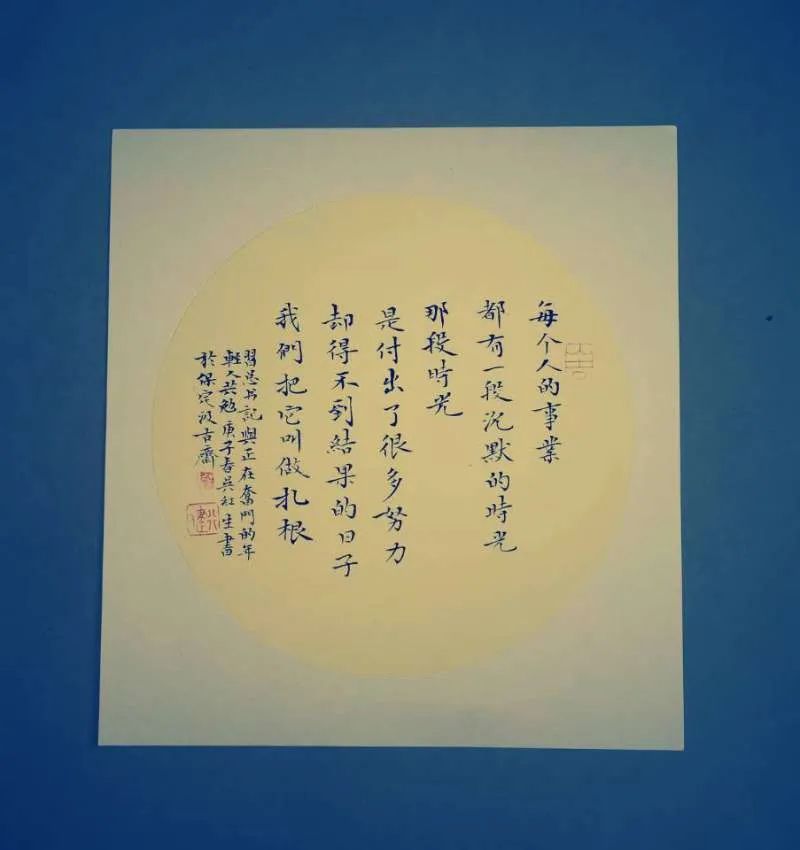 每个人的事業
都有一段沉默的時光
那段時光
是付出了很多努力
却得不到結果的日子
我們把它叫做扎根
習思书記與正在奮鬥的年
輕人共勉庚子春吳社生書
於保定汲古齋